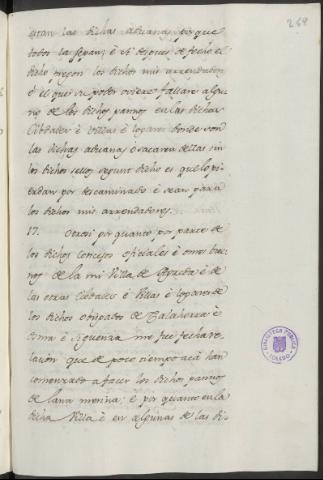 269
estan las dichas aduanas, porque
todos la sepan; é si despues de fecho el
dicho pregon los dichos mis arrendadores
é el que su poder oviere fallare algu-
no de los dichos pannos en las dichas
Cibdades é villas é logares donde son
las dichas aduanas, é sacaren dellas sin
los dichos sellos segunt dicho es que lo pi-
erdan por descaminado é sean para
los dichos mis arrendadores.
17. Otrosi por quanto por parte de
los dichos concejos oficiales é omes bue-
nos de la mi Villa de Agreda é de
las otras Cibdades é Villas é logares de
los dichos obispados de Calahorra é
Osma é Siguenza me fué fecha re-
lacion que de poco tiempo acá han
comenzado á facer los dichos pannos
de lana merina; é por quanto en la
dicha Villa é en algunas de las di-
BIBLIOTECA PUBLICA
TOLEDO